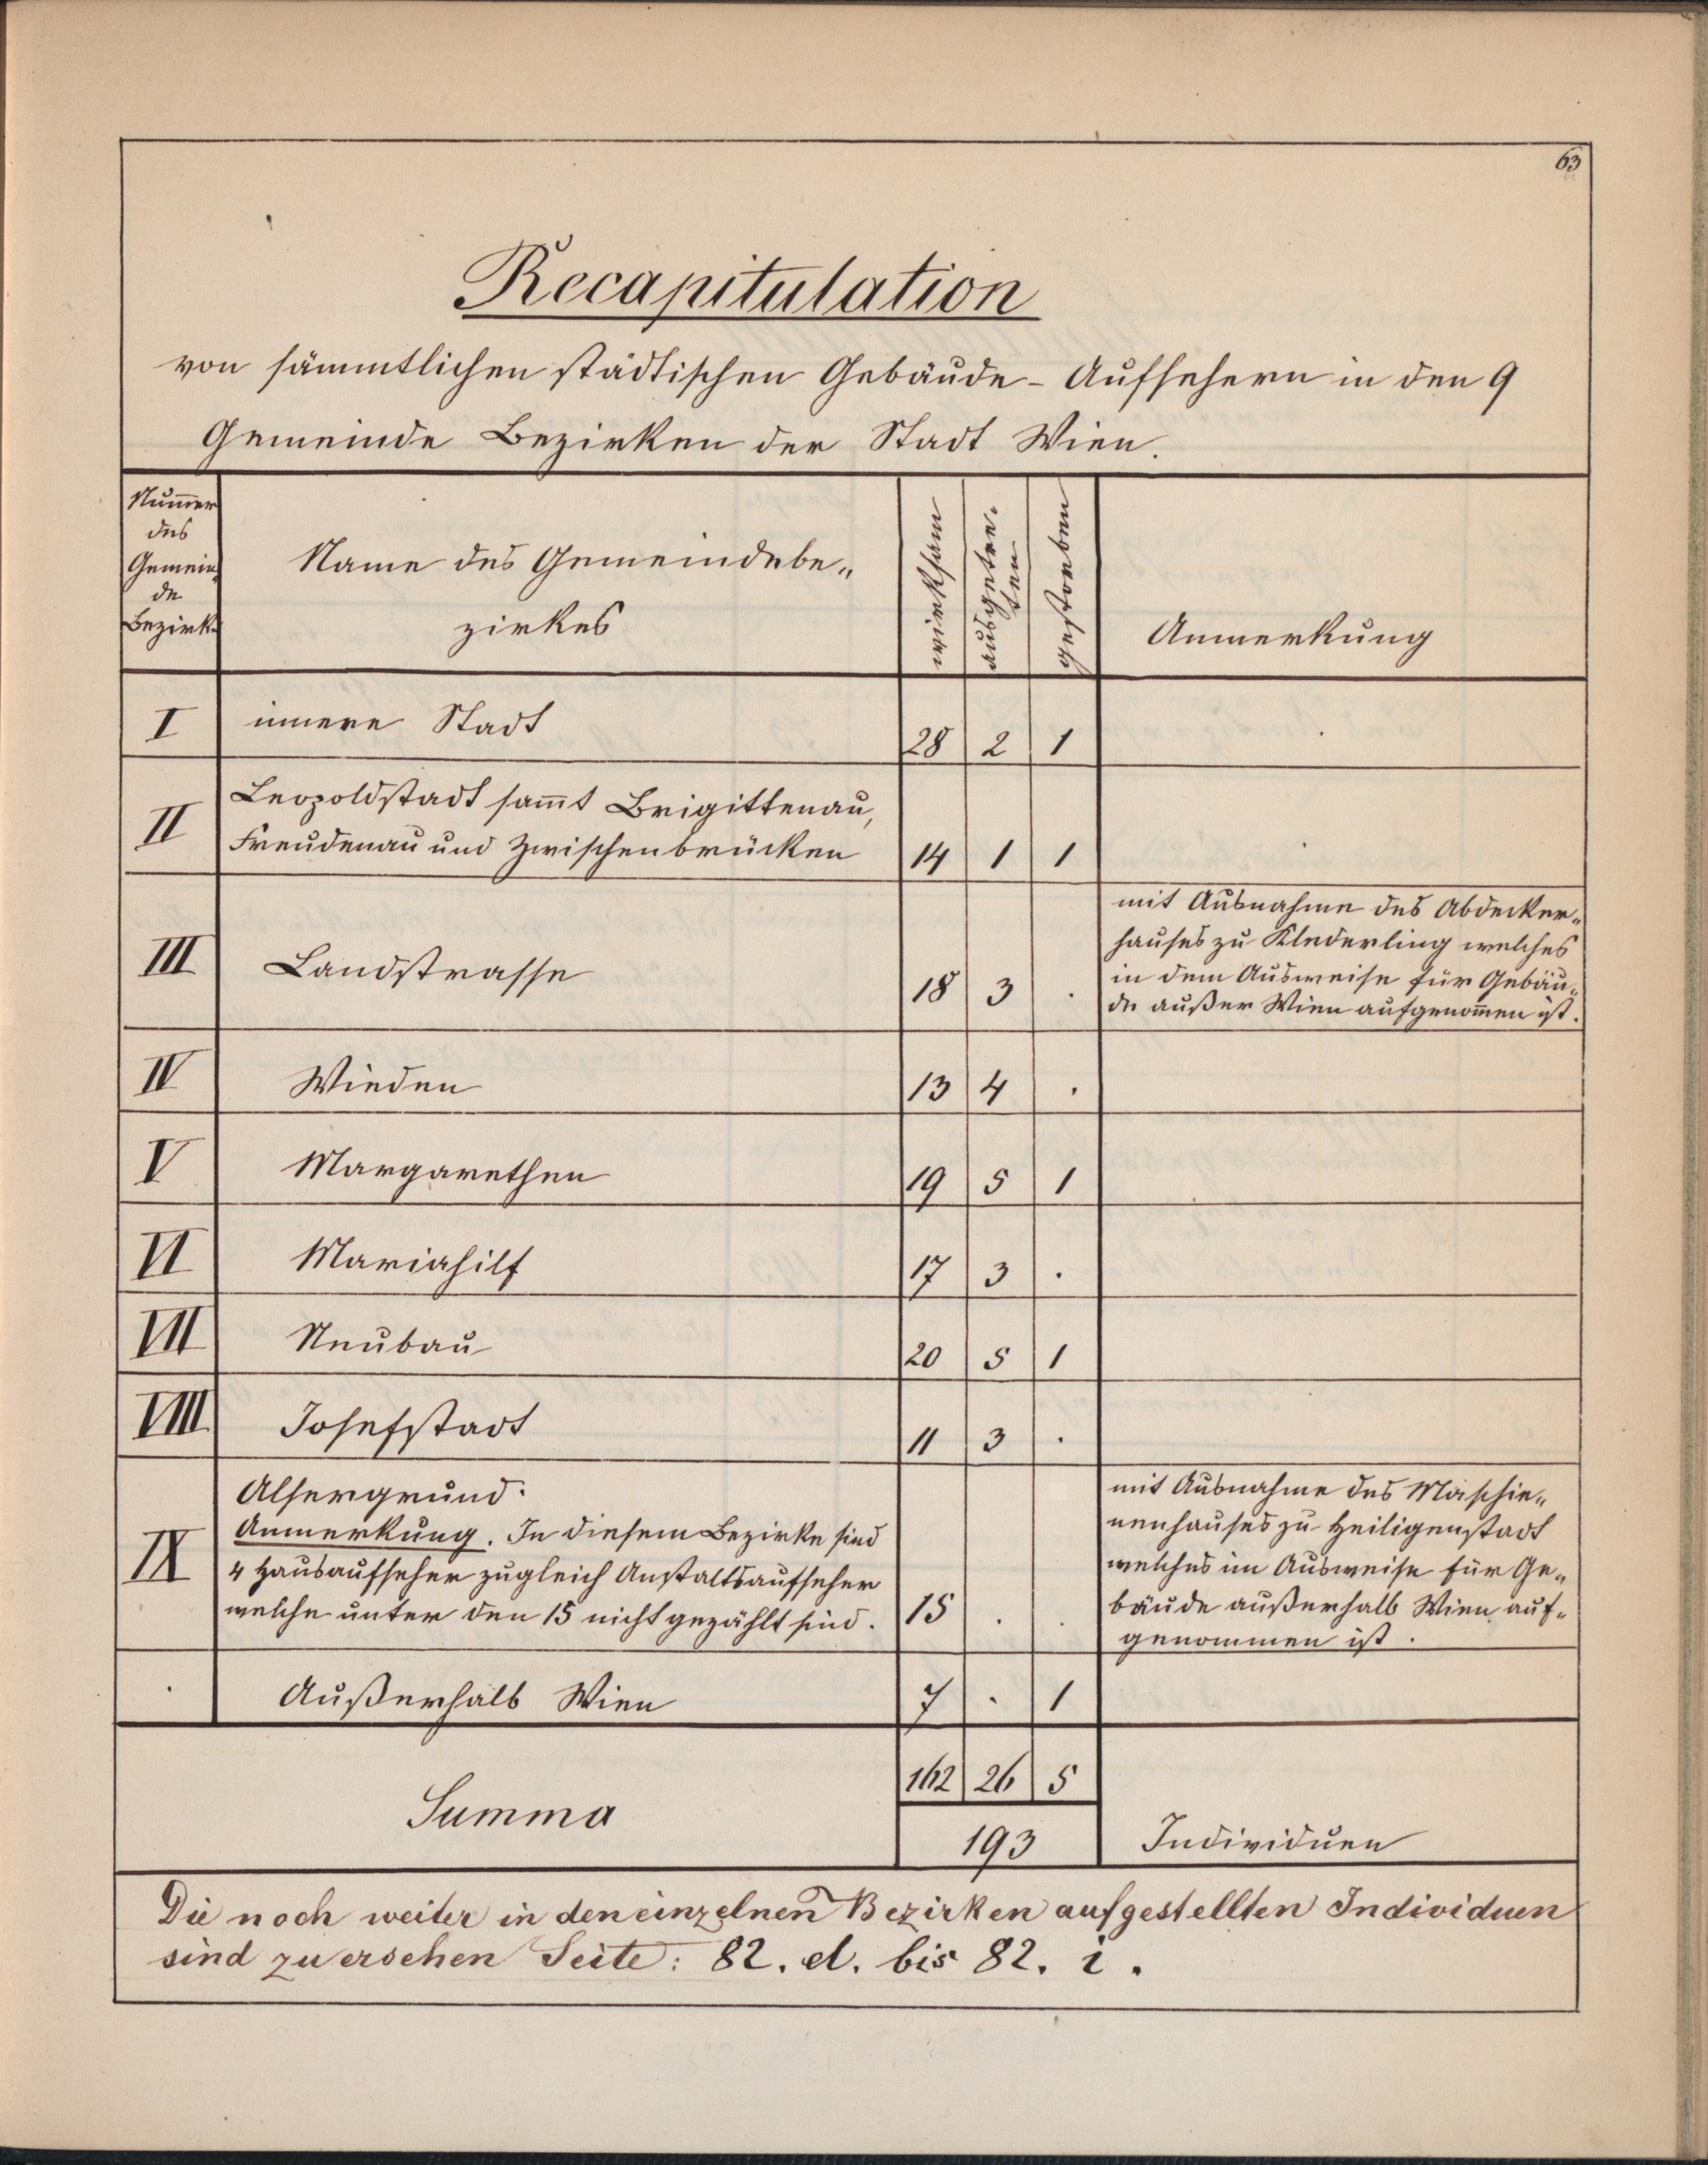 63
Recapitulation
von sämmtlichen städtischen Gebäude-Aufsehern in den 9
Gemeinde Bezirken der Stadt Wien.
Num̅er
des
Gemein„
de
Bezirkes
Name des Gemeindebe„
zirkes
wirksam
ausgetre-
ten
gestorben
Anmerkung
I innere Stadt 28 2 1 .
II Leopoldstadt sam̅t Brigittenau,
Freudenau und Zwischenbrücken 14 1 1 .
III Landstrasse 18 3 .
mit Ausnahme des Abdecker„
hauses zu Klederling welches
in dem Ausweise für Gebäu„
de außer Wien aufgenom̅en ist.
IV Wieden 13 4 .
V Margarethen 19 5 1
VI Mariahilf 17 3 .
VII Neubau 20 5 1
VIII Josefstadt 11 3 .
IX Alsergrund.
Anmerkung. In diesem Bezirke sind
4 Hausaufseher zugleich Anstaltsaufseher
welche unter den 15 nicht gezählt sind. 15 . .
mit Ausnahme des Maschie„
nenhauses zu Heiligenstadt
welches im Ausweise für Ge„
bäude außerhalb Wien auf„
genommen ist.
. Außerhalb Wien 7 . 1
Summa 162 26 5
193 Individuen
Die noch weiter in den einzelnen Bezirken aufgestellten Individuen
sind zu ersehen Seite: 82. d. bis 82. i.